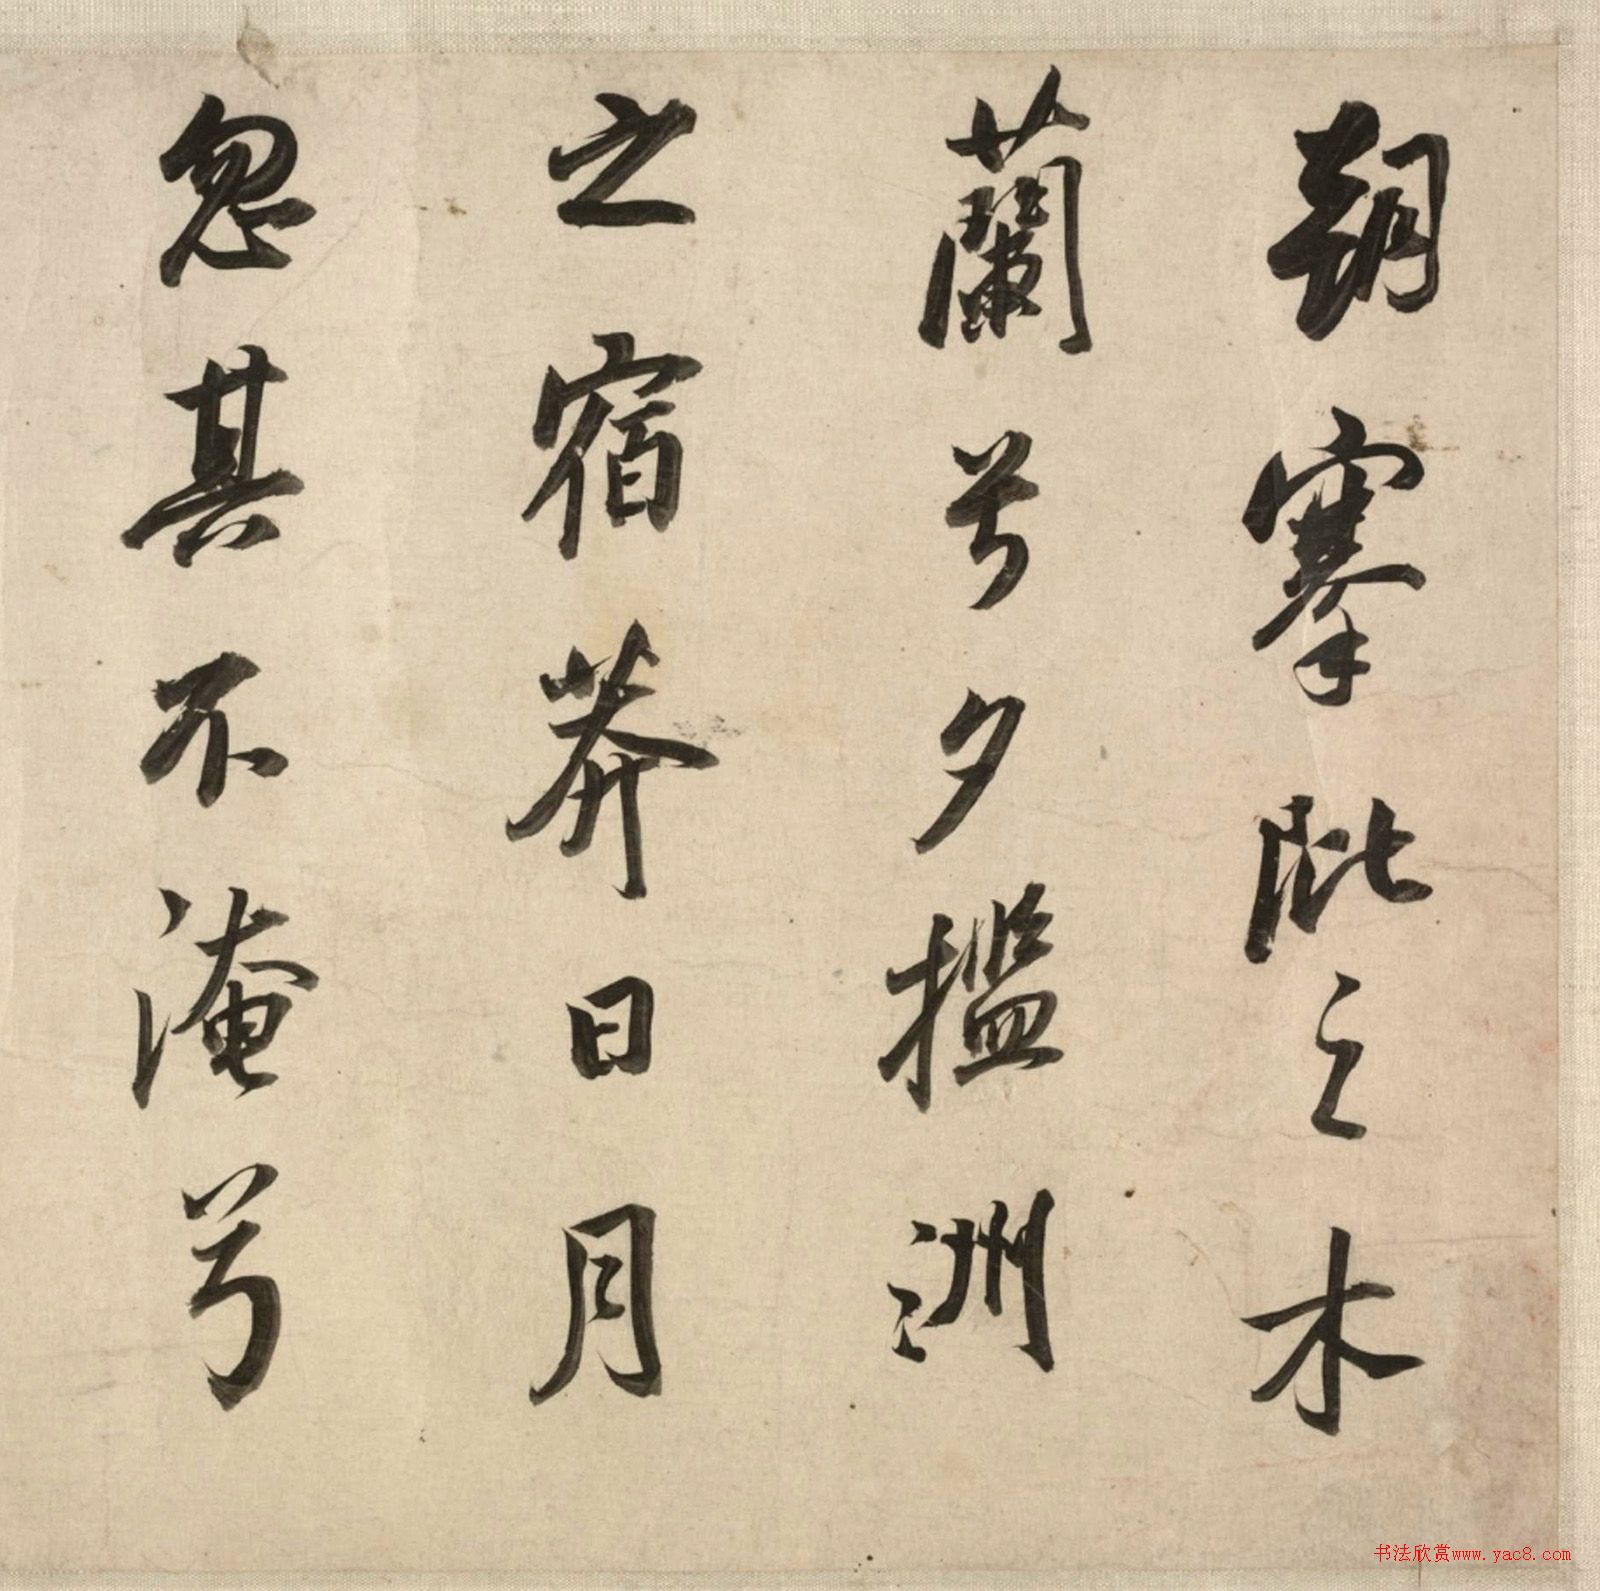 朝搴阰之木
蘭兮夕擥洲
之宿莽日月
忽其不淹兮
书法欣赏www.yac8.com